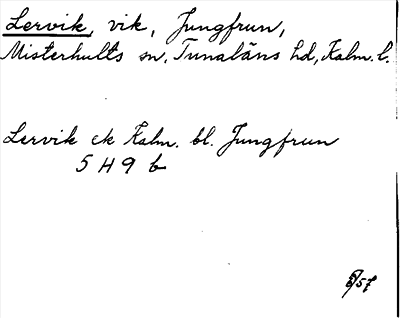 Lervik, vik, Jungfrun,
Misterhults sn, Tunaläns hd, Kalm. l.
Lervik ek Kalm. bl. Jungfrun
5 H 9 b